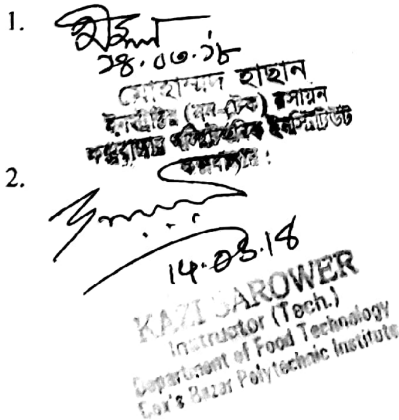 1.
১৪.০৩.১৮
মোহাম্মদ হাছান
ইনস্ট্রাক্টর (নন-টেক) রসায়ন
কক্সবাজার পলিটেকনিক ইনস্টিটিউট
কক্সবাজার।
2.
14.03.18
KAZI SAROWER
Instructor (Tech.)
Department of Food Technology
Cox's Bazar Polytechnic Institute